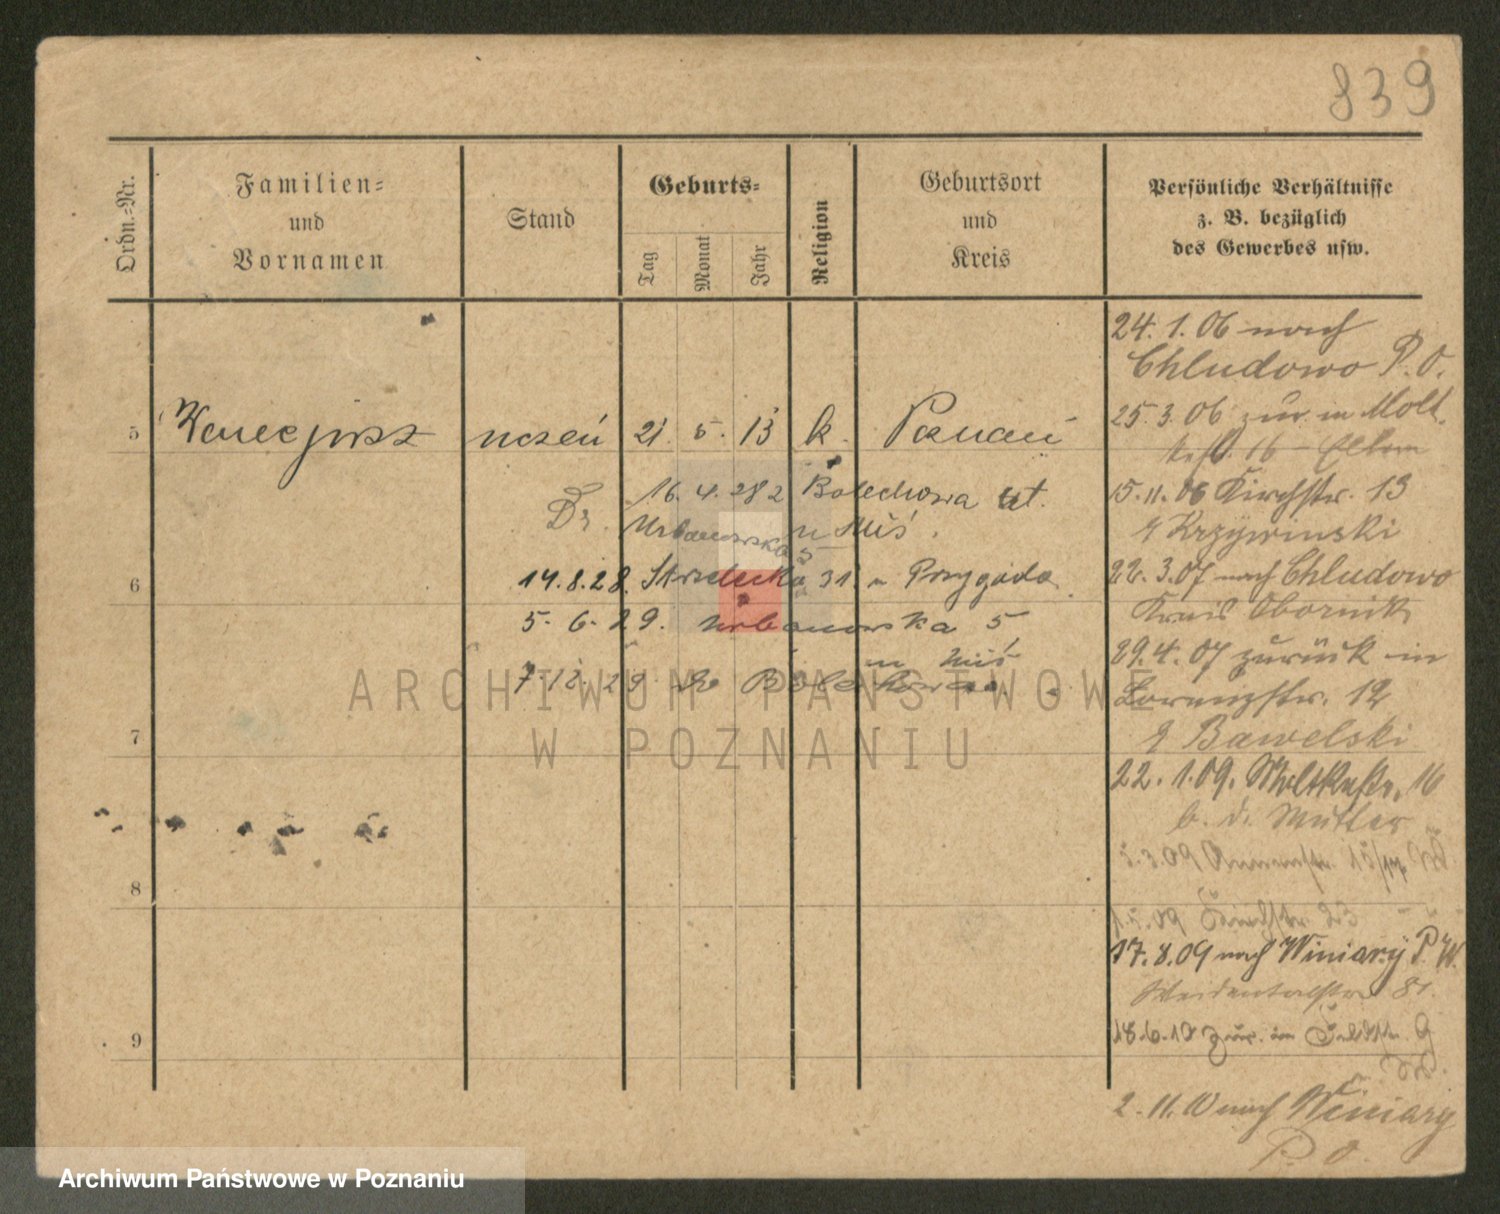 839
Ordn.=Nr.
Familien=
und
Vornamen
Stand
Geburts=
Tag
Monat
Jahr
Religion
Geburtsort
und
Kreis
Persönliche Verhältnisse
z. B. bezüglich
des Gewerbes usw.
5 uczeń 21. 5. 13 k. Poznań
16. 4. 28 z Bolechowa
Dr. Urbanowska 5 u Miś.
6
14.8.28. Strzelecka 31 u Przygoda
5. 6. 29. Urbanowska 5
u Miś
7. 12. 29 do Bolechowa
7
8
9
24. 1. 06 nach
Chludowo P. O.
25. 3. 06 zur. in Molt
15. 11. 06 Kirchstr. 13
Krzywinski
22. 3. 07 nach Chludowo
Kreis Obornik
29. 4. 07 zurück in
Lorenzstr. 12
Bawelski
22. 1. 09. Moltkestr. 16
b. d. Mutter
5. 3. 09 15/17
09 Kirchstr. 23
17. 8. 09 nach Winiary P. W.
18. 6. 10 zur. in 9
2. 11. 10 nach Winiary
P. O.
ARCHIWUM PAŃSTWOWE
W POZNANIU
Archiwum Państwowe w Poznaniu